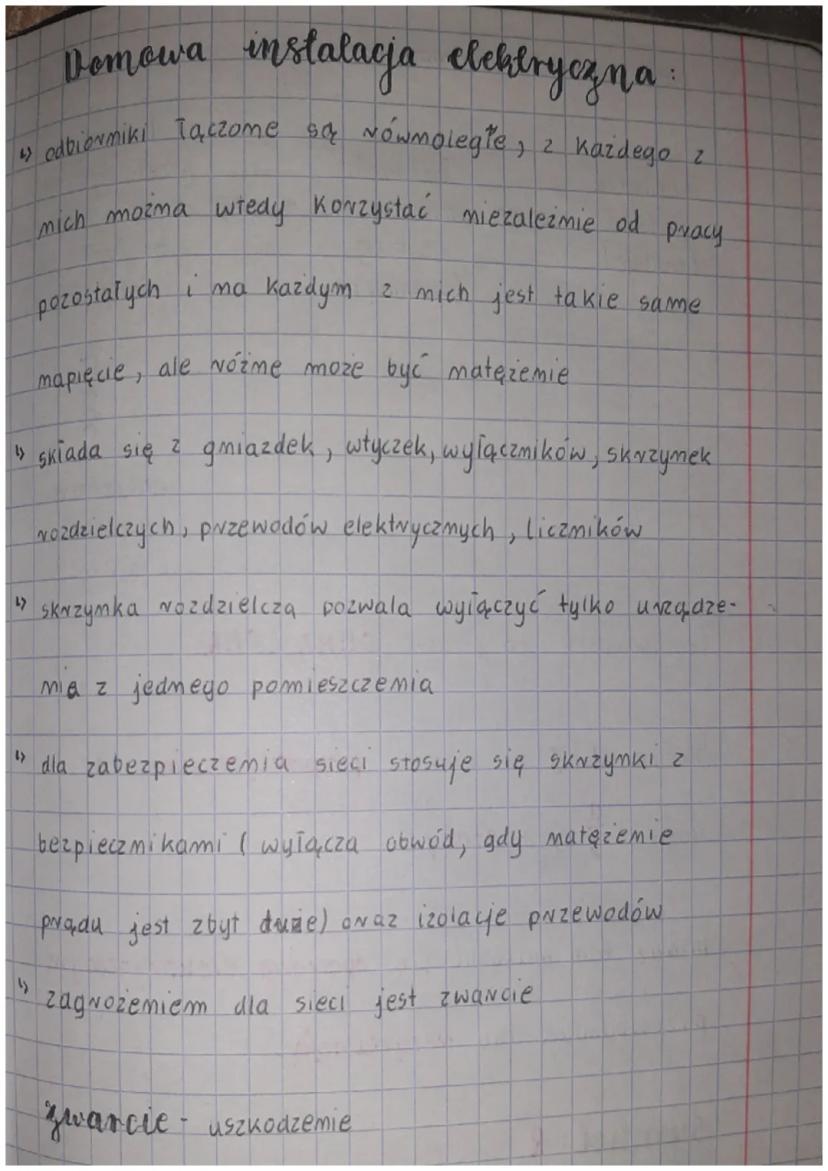 Domowa instalacja elektryczna:
↳ odbiorniki łączone są równolegle, z każdego z
nich można wtedy korzystać niezależnie od pracy
pozostałych i na każdym z nich jest takie same
napięcie, ale różne może być natężenie
↳ składa się z gniazdek, wtyczek, wyłączników, skrzynek
rozdzielczych, przewodów elektrycznych, liczników
↳ skrzynka rozdzielcza pozwala wyłączyć tylko urządze-
nia z jednego pomieszczenia
↳ dla zabezpieczenia sieci stosuje się skrzynki z
bezpiecznikami (wyłącza obwód, gdy natężenie
prądu jest zbyt duże) oraz izolacje przewodów
↳ zagrożeniem dla sieci jest zwarcie
zwarcie - uszkodzenie